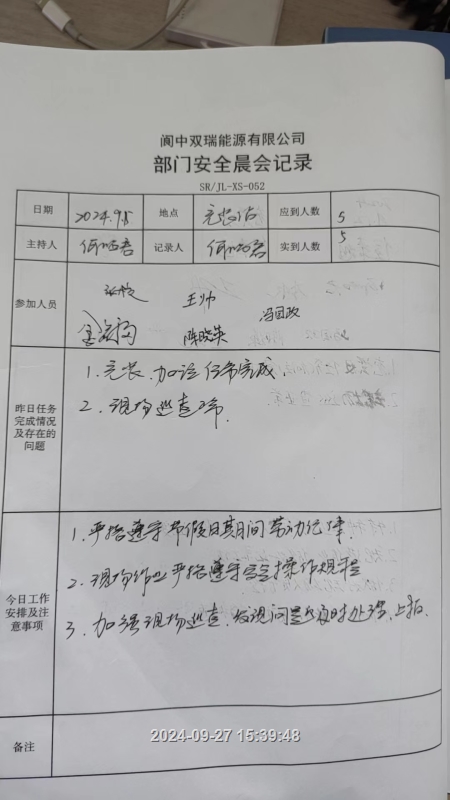 阆中双瑞能源有限公司
部门安全晨会记录
SR/JL-XS-052
日期 2024.9.5 地点 充装站 应到人数 5
主持人 记录人 实到人数 5
参加人员
王帅 冯国政
陈晓英
昨日任务完成情况及存在的问题
1. 充装、加注任务完成.
2. 现场巡查正常.
今日工作安排及注意事项
1. 严格遵守节假日期间劳动纪律.
2. 现场作业严格遵守安全操作规程
3. 加强现场巡查,发现问题及时处理、上报.
备注
2024-09-27 15:39:48